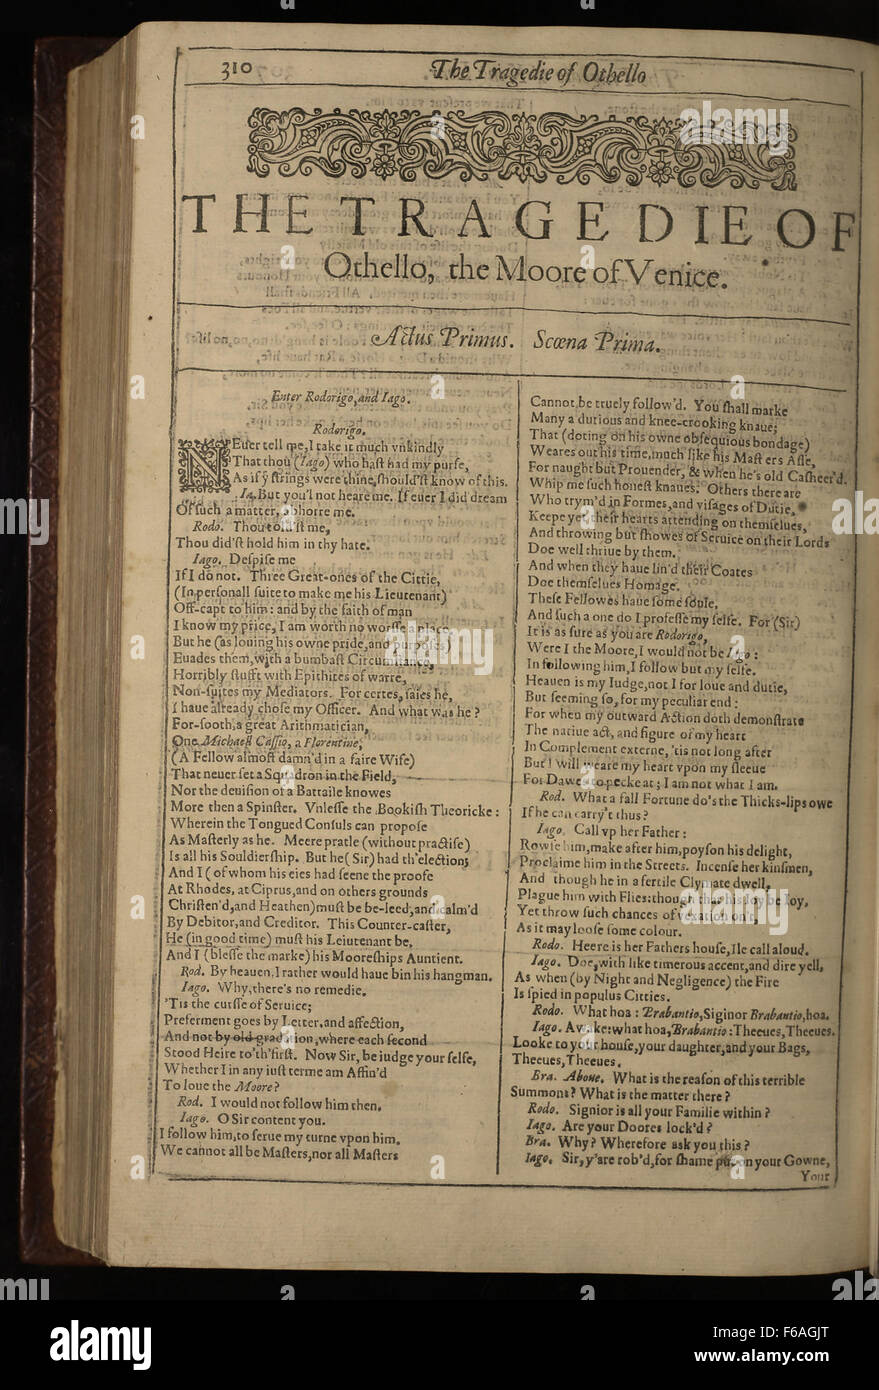 310
The Tragedie of Othello
THE TRAGEDIE OF
Othello, the Moore of Venice.
Actus Primus. Scœna Prima.
Enter Rodorigo, and Iago.
Rodorigo.
NEuer tell me, I take it much vnkindly
That thou (Iago) who haſt had my purſe,
As if ỹ ſtrings were thine, ſhould'ſt know of this.
Ia. But you'l not heare me. If euer I did dream
Of ſuch a matter, abhorre me.
Rodo. Thou told'ſt me,
Thou did'ſt hold him in thy hate.
Iago. Deſpiſe me
If I do not. Three Great-ones of the Cittie,
(In perſonall ſuite to make me his Lieutenant)
Off-capt to him: and by the faith of man
I know my price, I am worth no worſſe a place.
But he (as louing his owne pride, and purpoſes)
Euades them, with a bumbaſt Circumſtance,
Horribly ſtufft with Epithites of warre,
Non-ſuites my Mediators. For certes, ſaies he,
I haue already choſe my Officer. And what was he?
For-ſooth, a great Arithmatician,
One Michaell Caſſio, a Florentine,
(A Fellow almoſt damn'd in a faire Wife)
That neuer ſet a Squadron in the Field,
Nor the deuiſion of a Battaile knowes
More then a Spinſter. Vnleſſe the Bookiſh Theoricke:
Wherein the Tongued Conſuls can propoſe
As Maſterly as he. Meere pratle (without practiſe)
Is all his Souldierſhip. But he (Sir) had th'election;
And I (of whom his eies had ſeene the proofe
At Rhodes, at Ciprus, and on others grounds
Chriſten'd, and Heathen) muſt be be-leed, and calm'd
By Debitor, and Creditor. This Counter-caſter,
He (in good time) muſt his Leiutenant be,
And I (bleſſe the marke) his Mooreſhips Auntient.
Rod. By heauen, I rather would haue bin his hangman.
Iago. Why, there's no remedie.
'Tis the curſſe of Seruice;
Preferment goes by Letter, and affection,
And not by old gradation, where each ſecond
Stood Heire to'th'firſt. Now Sir, be iudge your ſelfe,
Whether I in any iuſt terme am Affin'd
To loue the Moore?
Rod. I would not follow him then.
Iago. O Sir content you.
I follow him, to ſerue my turne vpon him.
We cannot all be Maſters, nor all Maſters
Cannot be truely follow'd. You ſhall marke
Many a dutious and knee-crooking knaue;
That (doting on his owne obſequious bondage)
Weares out his time, much like his Maſters Aſſe,
For naught but Prouender, & when he's old Caſheer'd.
Whip me ſuch honeſt knaues. Others there are
Who trym'd in Formes, and viſages of Dutie,
Keepe yet their hearts attending on themſelues,
And throwing but ſhowes of Seruice on their Lords
Doe well thriue by them.
And when they haue lin'd their Coates
Doe themſelues Homage.
Theſe Fellowes haue ſome ſoule,
And ſuch a one do I profeſſe my ſelfe. For (Sir)
It is as ſure as you are Rodorigo,
Were I the Moore, I would not be Iago:
In following him, I follow but my ſelfe.
Heauen is my Iudge, not I for loue and dutie,
But ſeeming ſo, for my peculiar end:
For when my outward Action doth demonſtrate
The natiue act, and figure of my heart
In Complement externe, 'tis not long after
But I will weare my heart vpon my ſleeue
For Dawes to pecke at; I am not what I am.
Rod. What a fall Fortune do's the Thicks-lips owe
If he can carry't thus?
Iago. Call vp her Father:
Rowſe him, make after him, poyſon his delight,
Proclaime him in the Streets. Incenſe her kinſmen,
And though he in a fertile Clymate dwell,
Plague him with Flies: though that his Ioy be Ioy,
Yet throw ſuch chances of vexation on't,
As it may looſe ſome colour.
Rodo. Heere is her Fathers houſe, Ile call aloud.
Iago. Doe, with like timerous accent, and dire yell,
As when (by Night and Negligence) the Fire
Is ſpied in populus Citties.
Rodo. What hoa: Brabantio, Siginor Brabantio, hoa.
Iago. Awake: what hoa, Brabantio: Theeues, Theeues.
Looke to your houſe, your daughter, and your Bags,
Theeues, Theeues.
Bra. Aboue. What is the reaſon of this terrible
Summons? What is the matter there?
Rodo. Signior is all your Familie within?
Iago. Are your Doores lock'd?
Bra. Why? Wherefore ask you this?
Iago. Sir, y'are rob'd, for ſhame put on your Gowne,
Your
alamy
Image ID: F6AGJT
www.alamy.com